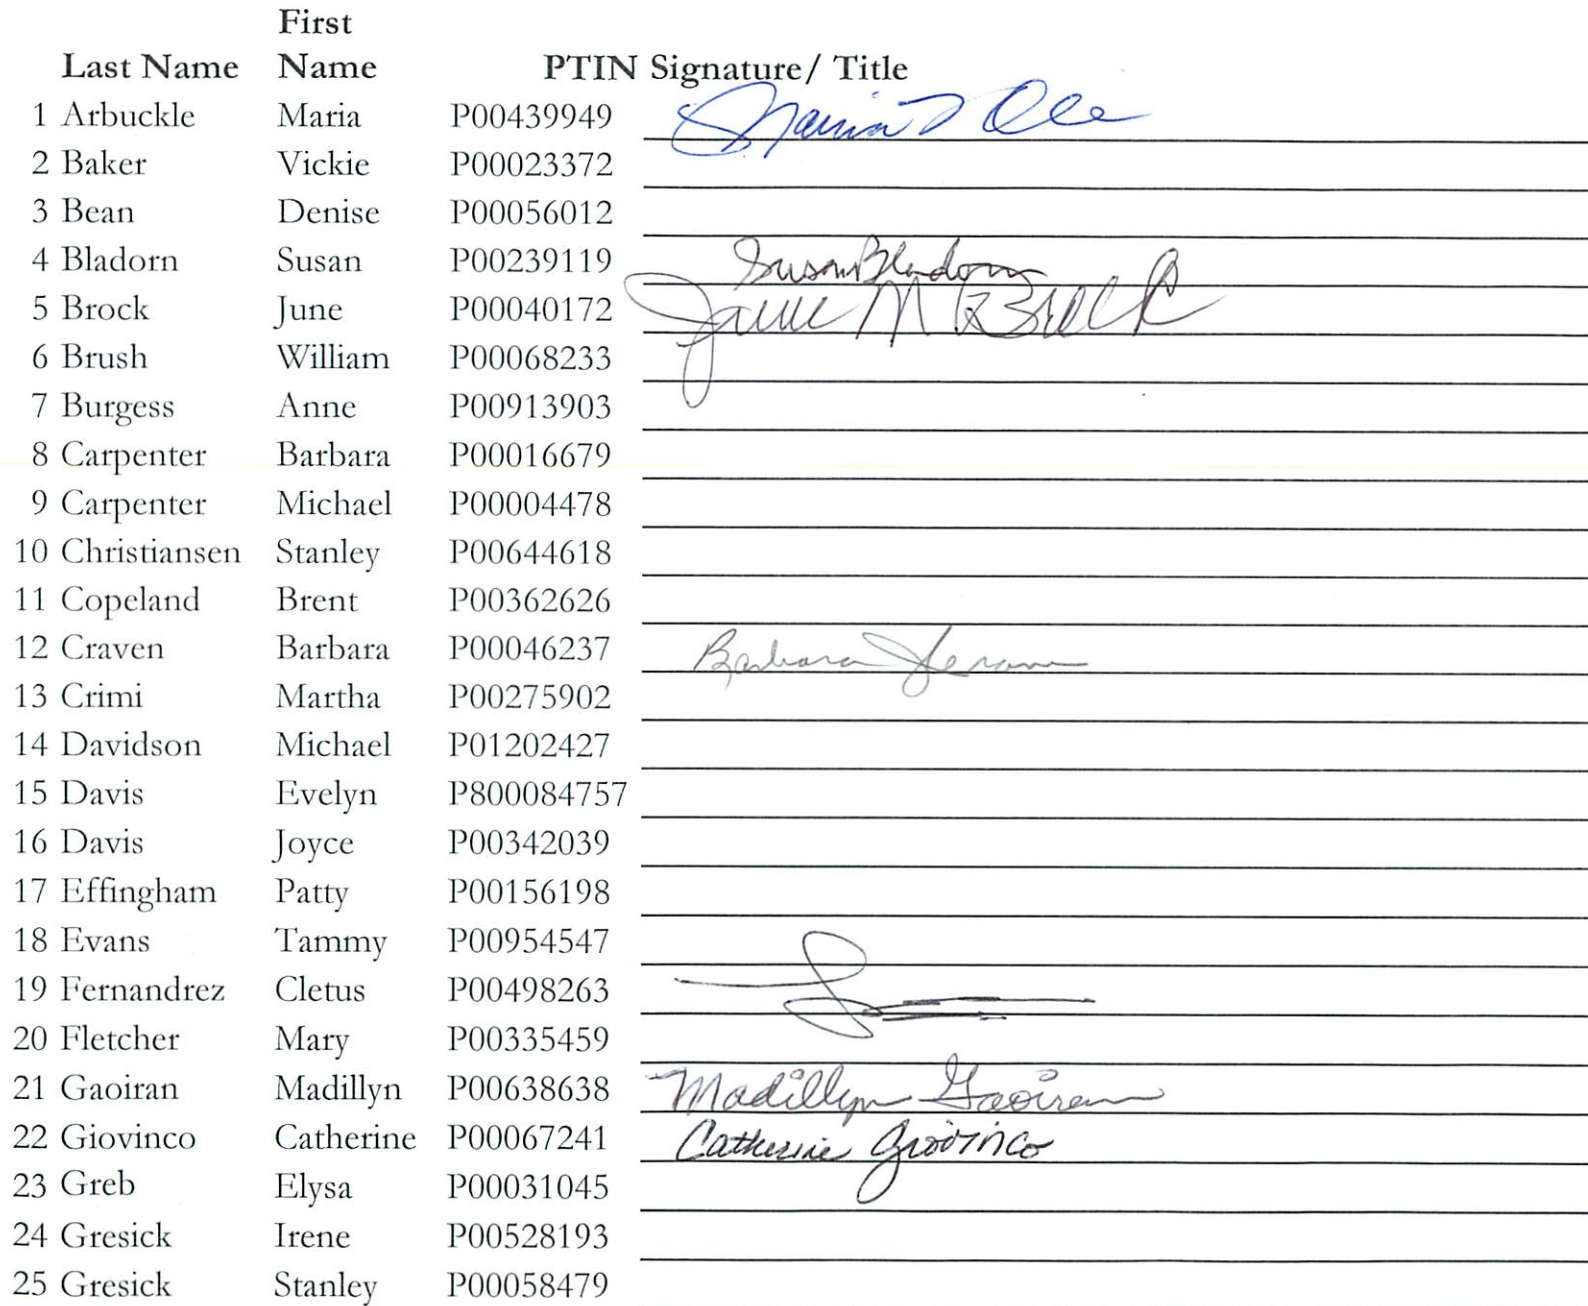 First
Last Name Name PTIN Signature/ Title
1 Arbuckle Maria P00439949 Maria
2 Baker Vickie P00023372
3 Bean Denise P00056012
4 Bladorn Susan P00239119 Susan Bladorn
5 Brock June P00040172 June M Brock
6 Brush William P00068233
7 Burgess Anne P00913903
8 Carpenter Barbara P00016679
9 Carpenter Michael P00004478
10 Christiansen Stanley P00644618
11 Copeland Brent P00362626
12 Craven Barbara P00046237 Barbara
13 Crimi Martha P00275902
14 Davidson Michael P01202427
15 Davis Evelyn P800084757
16 Davis Joyce P00342039
17 Effingham Patty P00156198
18 Evans Tammy P00954547
19 Fernandrez Cletus P00498263
20 Fletcher Mary P00335459
21 Gaoiran Madillyn P00638638 Madillyn Gaoiran
22 Giovinco Catherine P00067241 Catherine Giovinco
23 Greb Elysa P00031045
24 Gresick Irene P00528193
25 Gresick Stanley P00058479